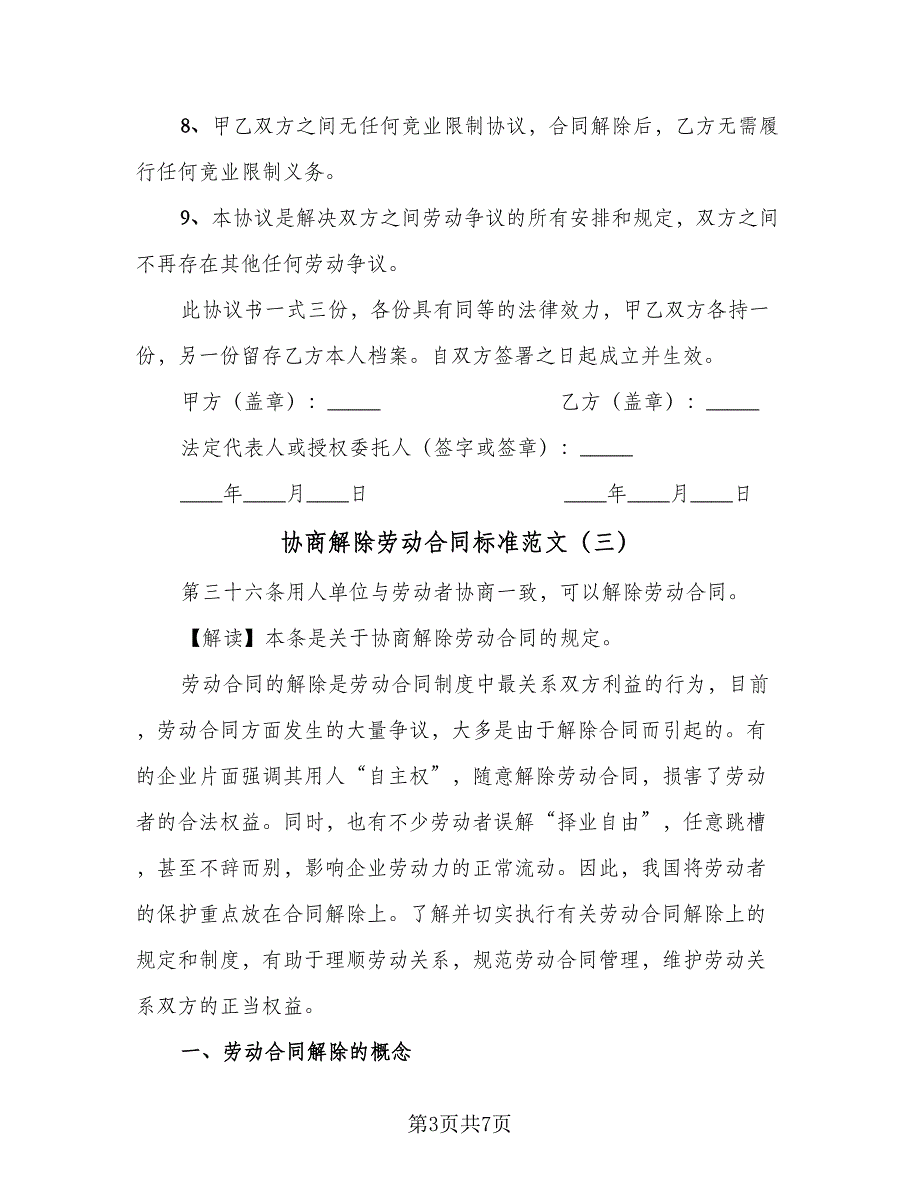 8、甲乙双方之间无任何竞业限制协议，合同解除后，乙方无需履
行任何竞业限制义务。
9、本协议是解决双方之间劳动争议的所有安排和规定，双方之间
不再存在其他任何劳动争议。
此协议书一式三份，各份具有同等的法律效力，甲乙双方各持一
份，另一份留存乙方本人档案。自双方签署之日起成立并生效。
甲方（盖章）：_____ 乙方（盖章）：_____
法定代表人或授权委托人（签字或签章）：_____
____年____月____日 ____年____月____日
协商解除劳动合同标准范文（三）
第三十六条用人单位与劳动者协商一致，可以解除劳动合同。
【解读】本条是关于协商解除劳动合同的规定。
劳动合同的解除是劳动合同制度中最关系双方利益的行为，目前
，劳动合同方面发生的大量争议，大多是由于解除合同而引起的。有
的企业片面强调其用人“自主权”，随意解除劳动合同，损害了劳动
者的合法权益。同时，也有不少劳动者误解“择业自由”，任意跳槽
，甚至不辞而别，影响企业劳动力的正常流动。因此，我国将劳动者
的保护重点放在合同解除上。了解并切实执行有关劳动合同解除上的
规定和制度，有助于理顺劳动关系，规范劳动合同管理，维护劳动关
系双方的正当权益。
一、劳动合同解除的概念
第3页共7页